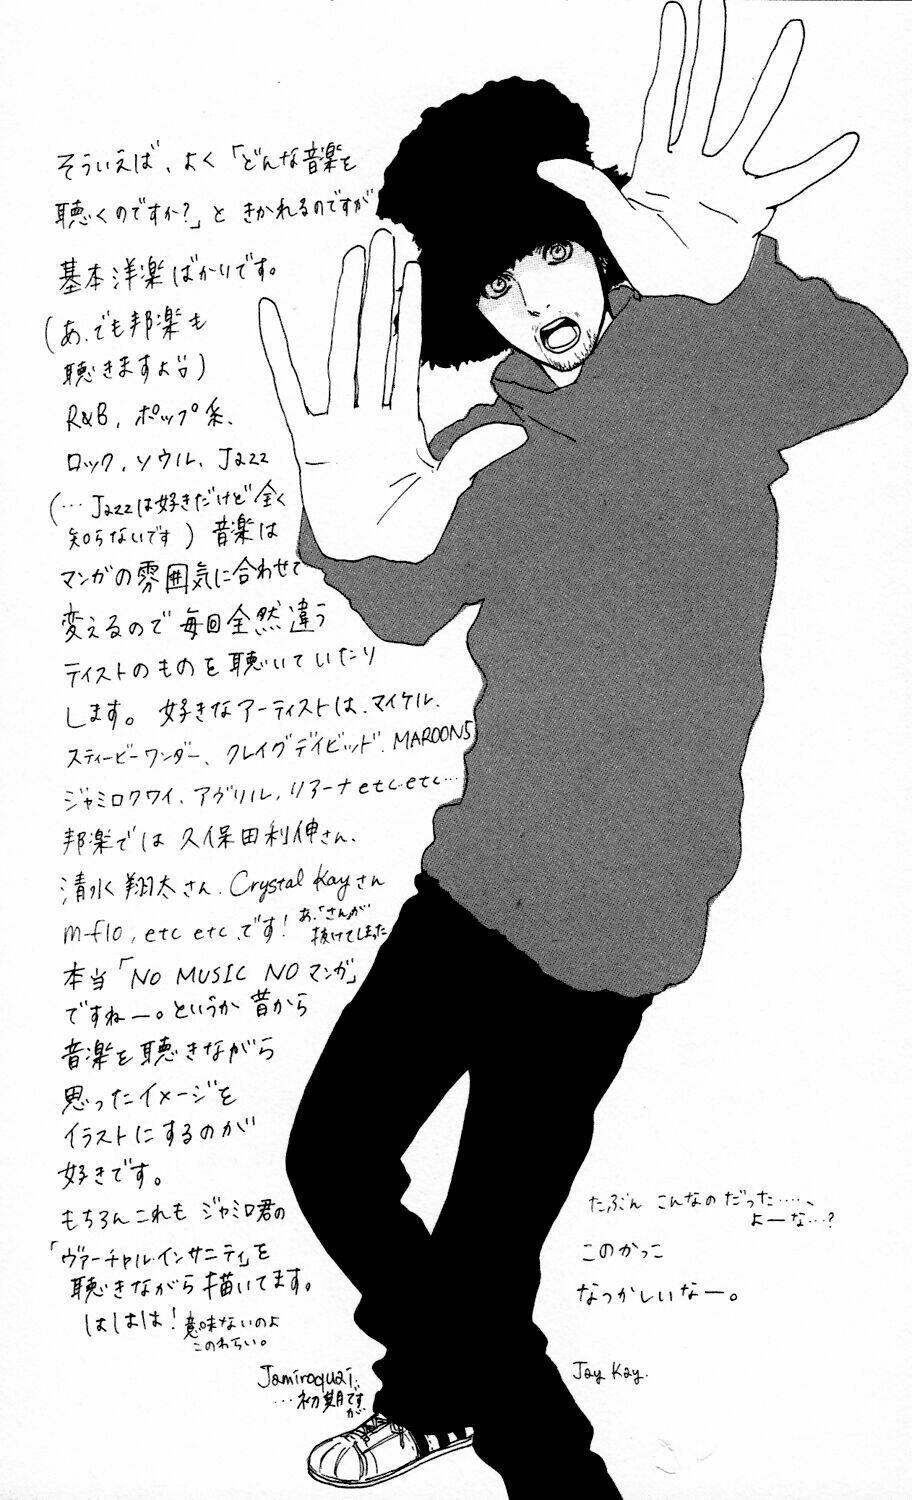 そういえば、よく「どんな音楽を
聴くのですか?」と きかれるのですが
基本洋楽ばかりです。
(あ、でも邦楽も
聴きますよ)
R&B, ポップ系、
ロック、ソウル、Jazz
(…Jazzは好きだけど全く
知らないです) 音楽は
マンガの雰囲気に合わせて
変えるので毎回全然違う
テイストのものを聴いていたり
します。好きなアーティストは、マイケル、
スティービーワンダー、クレイグデイビッド、MAROON5
ジャミロクワイ、アヴリル、リアーナetc.etc…
邦楽では久保田利伸さん、
清水翔太さん、Crystal Kayさん
m-flo, etc etc、です! あ、「さん」が
抜けてしまった
本当「NO MUSIC NO マンガ」
ですねー。というか昔から
音楽を聴きながら
思ったイメージを
イラストにするのが
好きです。
もちろんこれも ジャミロ君の
「ヴァーチャル・インサニティ」を
聴きながら描いてます。
ははは! 意味ないのよ
このわらい。
Jamiroquai.
…初期ですが
たぶん こんなのだった……、
よーな…?
このかっこ
なつかしいなー。
Jay Kay.